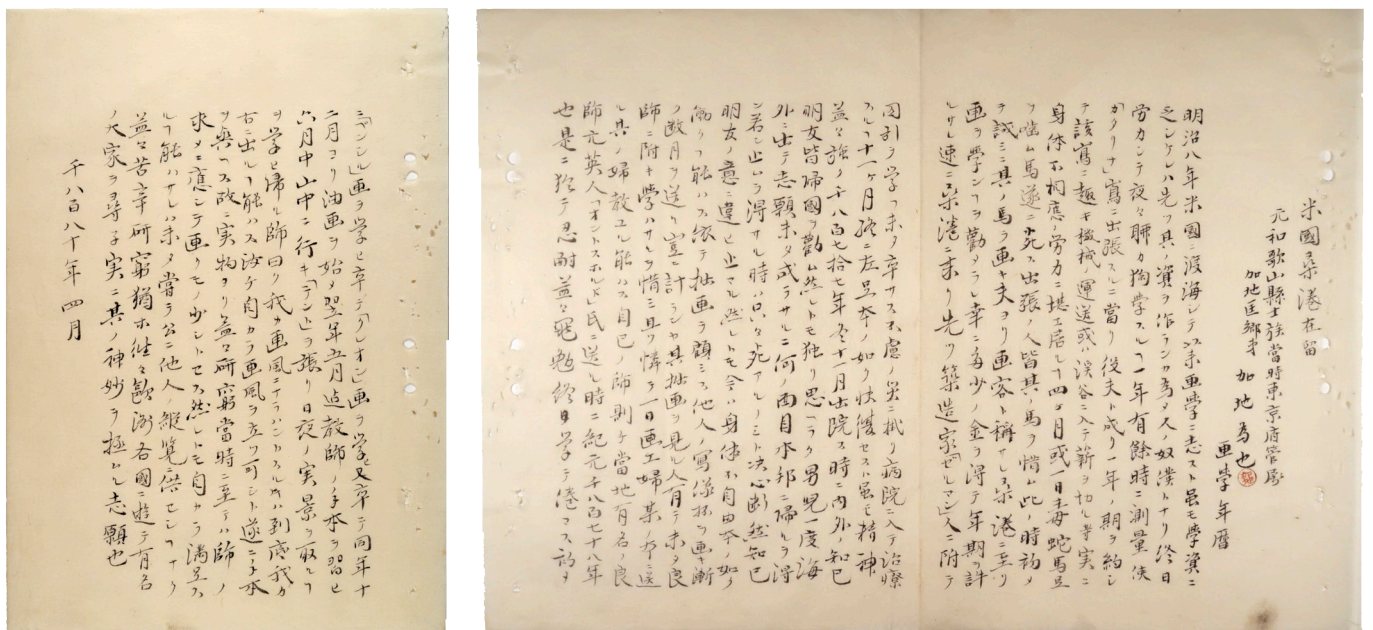 米國桑港在留
元和歌山縣士族當時東京府管属
加地匡郷弟 加地為也
画學年暦
明治八年米國ニ渡海シテ以来画學ニ志スト雖モ學資ニ
乏シケレハ先ツ其ノ資ヲ作ランカ為メ人ノ奴僕トナリ終日
労力シテ夜々聊カ獨学スルヿ一年有餘時ニ測量使
「カタリナ」嶌ニ出張スルニ當リ役夫ト成リ一年ノ期ヲ約シ
テ該嶌ニ趣キ機械ノ運送或ハ渓谷ニ入テ薪ヲ切ル等実ニ
身体不相應ノ労力ニ堪エ居ルヿ四ケ月或一日毒蛇馬足
ヲ噬ム馬遂ニ死ス出張ノ人皆其ノ馬ヲ惜ム此ノ時初メ
テ試ミニ其ノ馬ヲ画キ夫ヨリ画客ト稱サレ桑港ニ至リ
画ヲ學ンヿヲ勧メラレ幸ニ多少ノ金ヲ得テ年期ヲ許
サレ速ニ桑港ニ来リ先ツ築造家「セルマン」人ニ附テ
図引ヲ学フ未タ卒サス不慮ノ災ニ罹リ病院ニ入テ治療
スルヿ十一ケ月終ニ左足本ノ如ク快復セスト虽モ精神
益々強ク千八百七拾七年冬十一月出院ス時ニ内外ノ知已
朋友皆帰國ヲ勸ム然レトモ独リ思ヘラク男児一度海
外ニ出テ志願未タ成ラサルニ何ノ面目本邦ニ帰ルヲ得
ン若シ止ムヲ得サル時ハ只タ死アルノミト决心断然知已
朋友ノ意ニ違ヒ止マル然レトモ今ハ身体不自由本ノ如ク
働ク能ハス依テ拙画ヲ顧ミス他人ノ写像抔ヲ画キ漸
ク数月ヲ送ル豈ニ計ランヤ其拙画ヲ見ル人有テ未タ良
師ニ附キ學ハサルヲ惜ミ且ツ憐ミ一日画工婦某ノ本ニ送
ル其ノ婦教エル能ハス自已ノ師則チ當地有名ノ良
師元英人「オントスホルド」氏ニ送ル時ニ紀元千八百七十八年
也是ニ於テ忍耐益々勉強終日学テ倦マス初メ
「ペンシル」画ヲ学ヒ卒テ「クレオン」画ヲ学ヒ又卒テ同年十
二月ヨリ油画ヲ始メ翌年五月迠教師ノ手本ヲ習ヒ
六月中山中ニ行キ「テント」ヲ張リ日夜ノ実景ヲ取ルヿ
ヲ学ヒ帰ル師曰ク我カ画風ニナラハントスル片ハ到底我カ
右ニ出ルヿ能ハス汝ケ自カラ画風ヲ立ツ可シト遂ニ手本
ヲ與ヘス故ニ実物ヨリ益々研窮當時ニ至テハ師ノ
求メニ應シテ画クモノ少シトセス然レトモ自カラ満足ス
ルヿ能ハサレハ未タ嘗テ公ニ他人ノ縦覧ニ供センヿナク
益々苦辛研窮猶ホ往々歐洲各國ニ遊テ有名
ノ大家ヲ尋子実ニ其ノ神妙ヲ極ムル志願也
千八百八十年四月